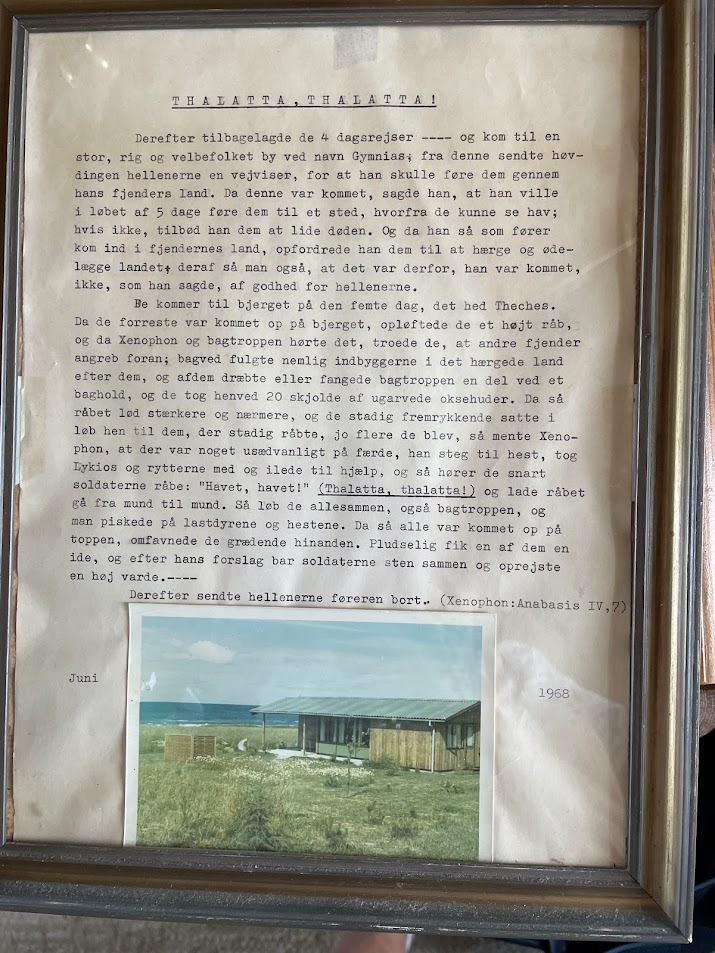 THALATTA, THALATTA!
Derefter tilbagelagde de 4 dagsrejser ---- og kom til en
stor, rig og velbefolket by ved navn Gymnias; fra denne sendte høv-
dingen hellenerne en vejviser, for at han skulle føre dem gennem
hans fjenders land. Da denne var kommet, sagde han, at han ville
i løbet af 5 dage føre dem til et sted, hvorfra de kunne se hav;
hvis ikke, tilbød han dem at lide døden. Og da han så som fører
kom ind i fjendernes land, opfordrede han dem til at hærge og øde-
lægge landet; deraf så man også, at det var derfor, han var kommet,
ikke, som han sagde, af godhed for hellenerne.
De kommer til bjerget på den femte dag, det hed Theches.
Da de forreste var kommet op på bjerget, opløftede de et højt råb,
og da Xenophon og bagtroppen hørte det, troede de, at andre fjender
angreb foran; bagved fulgte nemlig indbyggerne i det hærgede land
efter dem, og afdem dræbte eller fangede bagtroppen en del ved et
baghold, og de tog henved 20 skjolde af ugarvede oksehuder. Da så
råbet lød stærkere og nærmere, og de stadig fremrykkende satte i
løb hen til dem, der stadig råbte, jo flere de blev, så mente Xeno-
phon, at der var noget usædvanligt på færde, han steg til hest, tog
Lykios og rytterne med og ilede til hjælp, og så hører de snart
soldaterne råbe: "Havet, havet!" (Thalatta, thalatta!) og lade råbet
gå fra mund til mund. Så løb de allesammen, også bagtroppen, og
man piskede på lastdyrene og hestene. Da så alle var kommet op på
toppen, omfavnede de grædende hinanden. Pludselig fik en af dem en
ide, og efter hans forslag bar soldaterne sten sammen og oprejste
en høj varde.----
Derefter sendte hellenerne føreren bort. (Xenophon:Anabasis IV,7)
Juni 1968